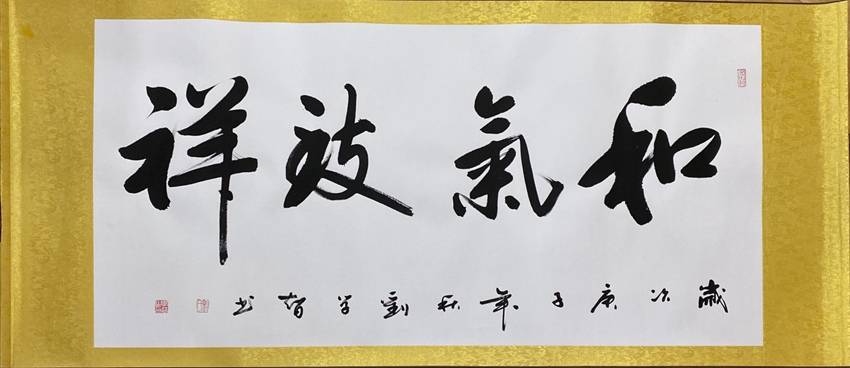 和氣致祥
歲次庚子年秋劉学智书